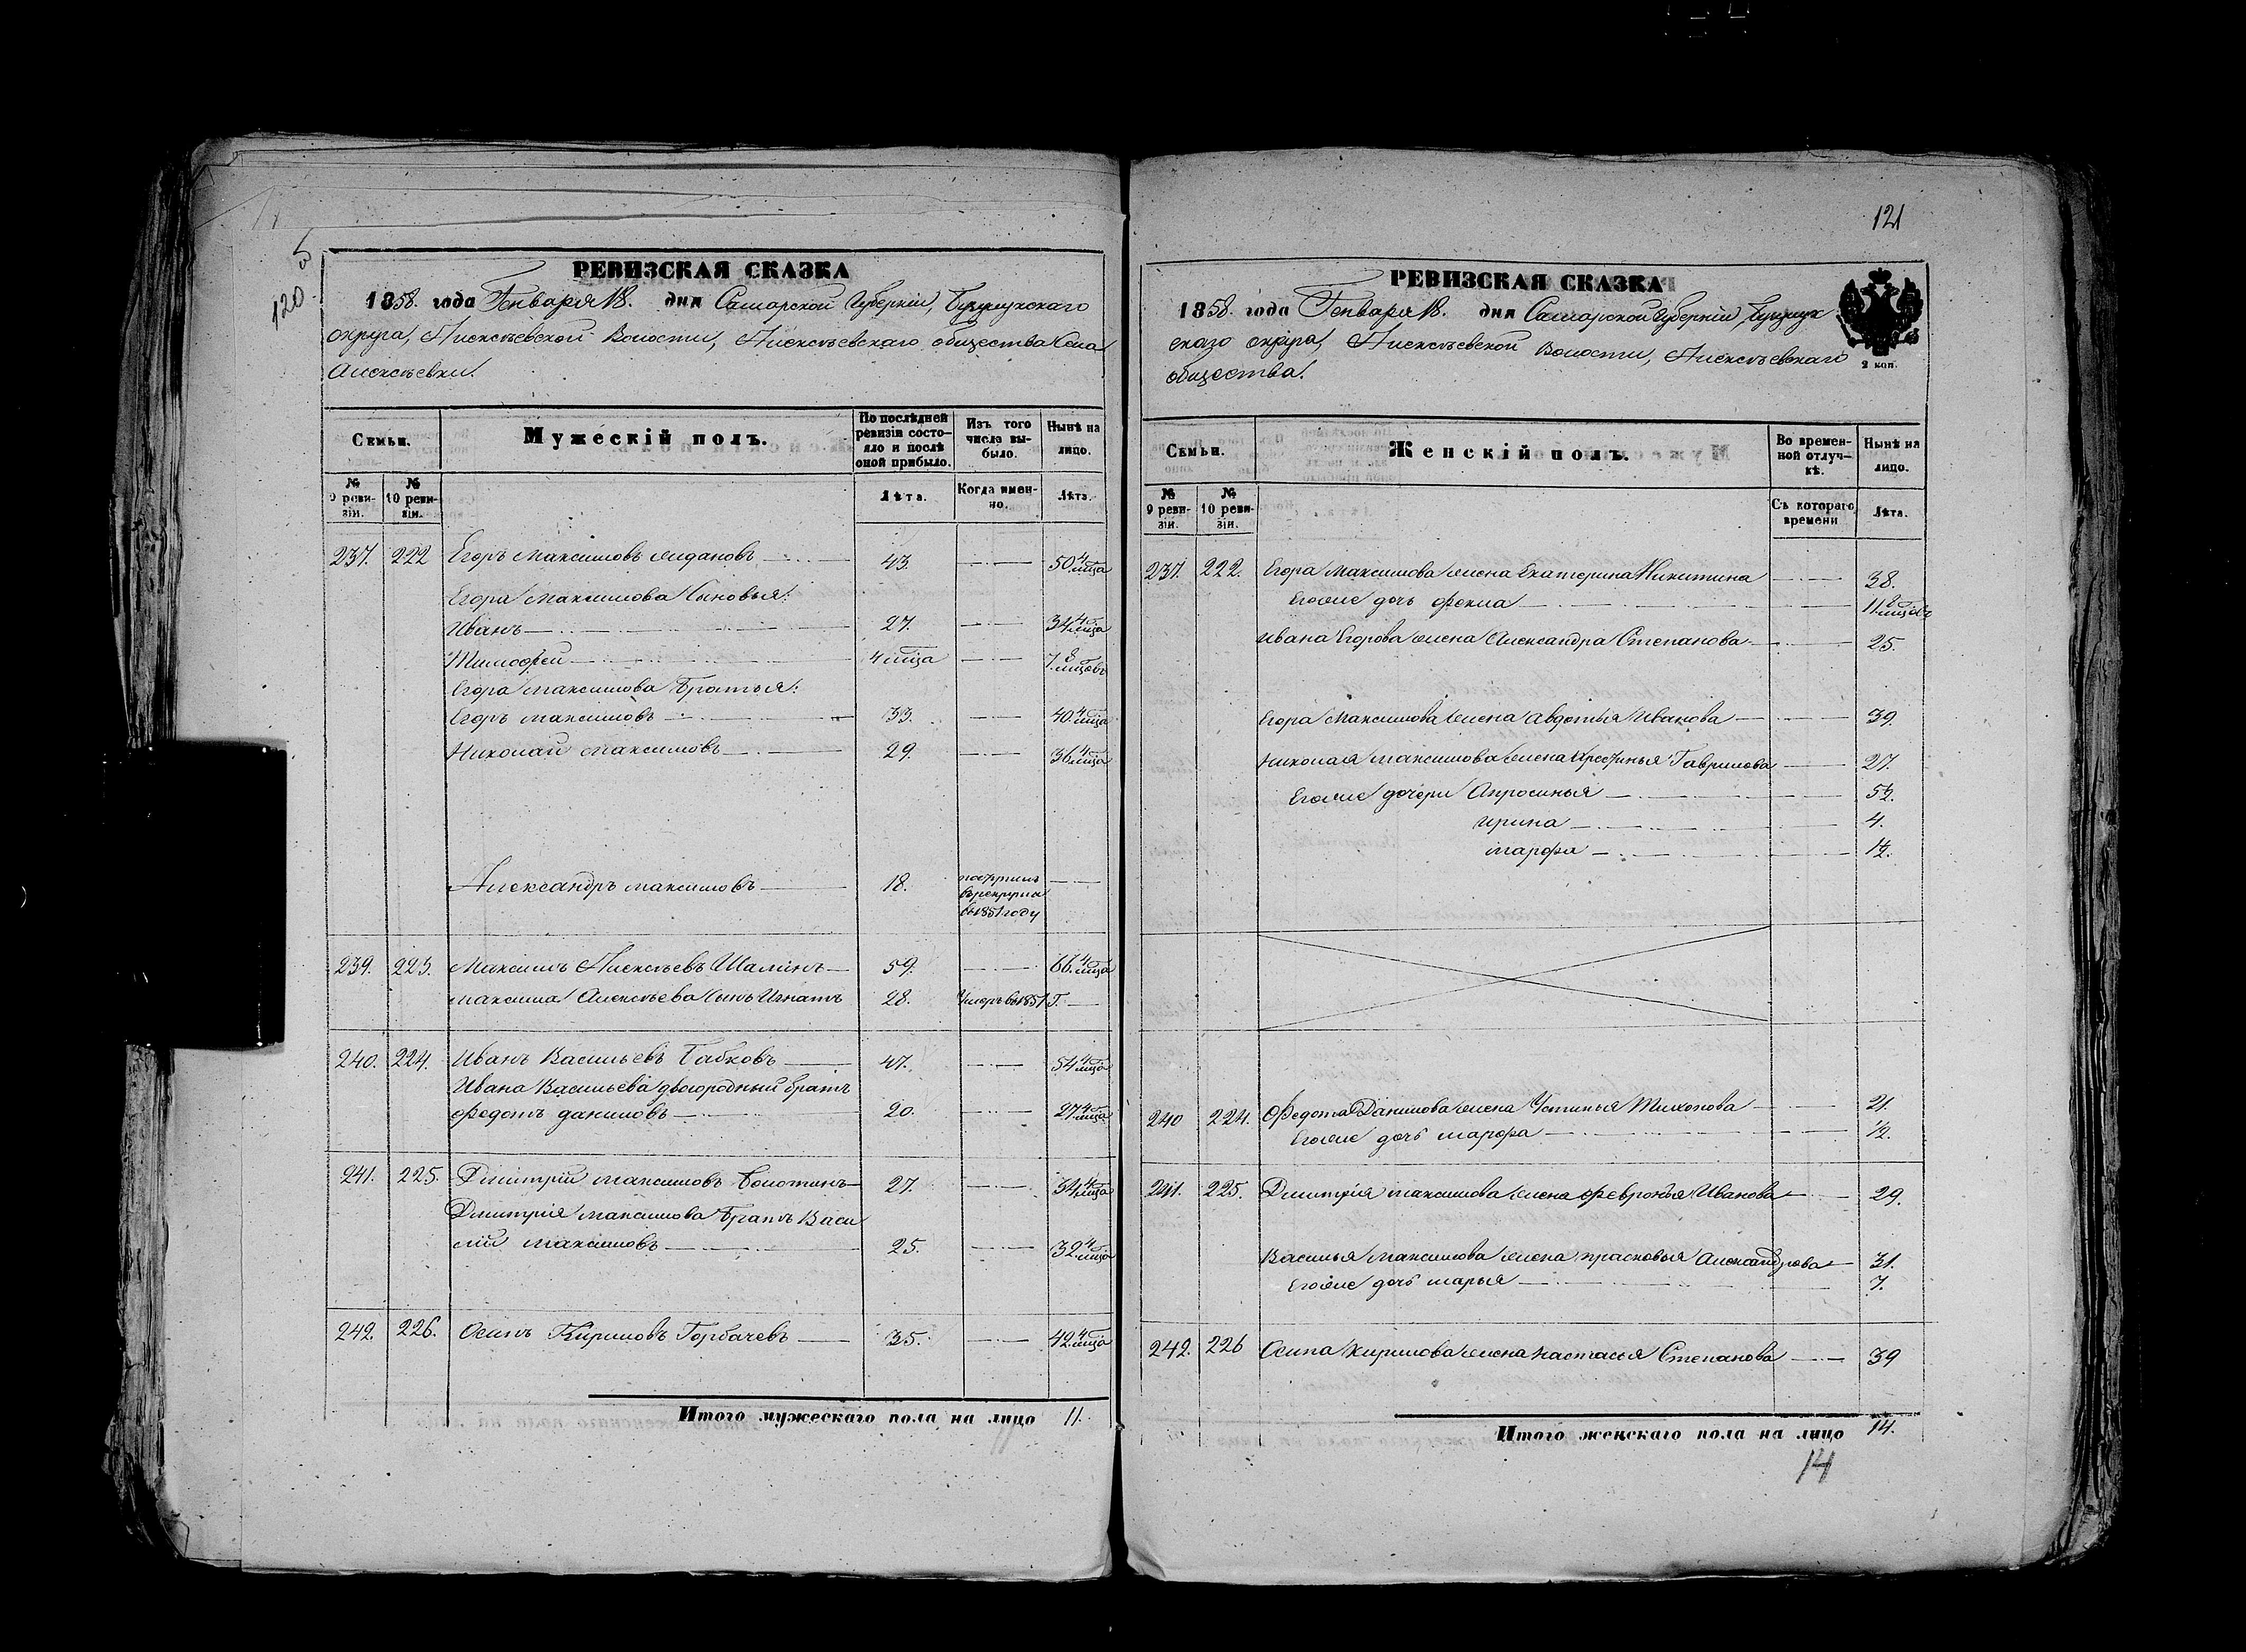 5
120.
РЕВИЗСКАЯ СКАЗКА
1858. года Генваря 18. дня Самарской Губерніи, Бузулукскаго
округа, Алексѣевской Волости, Алексѣевскаго общества Села
Алексѣевки.
Семьи.
Мужескій полъ.
По послѣдней ревизіи состояло и послѣ оной прибыло.
Изъ того числа выбыло.
Нынѣ на лицо.
№ 9 ревизіи.
№ 10 ревизіи.
Лѣта.
Когда именно.
Лѣта.
237. 222 Егоръ Максимовъ 43. 50. 4 мѣца
Егора Максимова Сыновья:
Иванъ 27. 34. 4 мѣца
Тимофей 4 мѣца 7. 8 мѣцовъ
Егора Максимова Братья:
Егоръ Максимовъ 33. 40. 4 мѣца
Николай Максимовъ 29. 36. 4 мѣца
Александръ Максимовъ 18. поступилъ
въ рекруты
въ 1851 году
239. 223. Максимъ Алексѣевъ Шалинъ 59. 66. 4 мѣца
Максима Алексѣева сынъ Игнатъ 28. Умеръ въ 1851 Г.
240. 224. Иванъ Васильевъ Бабковъ 47. 54. 4 мѣца
Ивана Васильева двоюродный братъ
Федотъ Даниловъ 20. 27. 4 мѣца
241. 225. Дмитрій Максимовъ Болотинъ 27. 34. 4 мѣца
Дмитрія Максимова Братъ Васи
лій Максимовъ 25. 32. 4 мѣца
242. 226. Осипъ Кириловъ Горбачевъ 35. 42. 4 мѣца
Итого мужескаго пола на лицо 11.
121
РЕВИЗСКАЯ СКАЗКА
1858. года Генваря 18. дня Самарской Губерніи, Бузулук
скаго округа, Алексѣевской Волости, Алексѣевскаго
общества.
2 коп.
Семьи.
Женскій полъ.
Во временной отлучкѣ.
Нынѣ на лицо.
№ 9 ревизіи.
№ 10 ревизіи.
Съ котораго времени
Лѣта.
237. 222. Егора Максимова жена Екатерина Никитина 38.
Егоже дочь Фекла 11. 8 мѣцовъ
Ивана Егорова жена Александра Степанова 25.
Егора Максимова жена Авдотья Иванова 39.
Николая Максимова жена Хрестинья Гаврилова 27.
Егоже дочери Апросинья 5½.
Ирина 4.
Марфа ½.
240 224. Федота Данилова жена Устинья Тихонова 21.
Егоже дочь Марфа ½.
241. 225. Дмитрія Максимова жена Февронья Иванова 29.
Василья Максимова жена Прасковья Александрова 31.
Егоже дочь Марья 7.
242. 226 Осипа Кирилова жена Настасья Степанова 39
Итого женскаго пола на лицо 14.
14